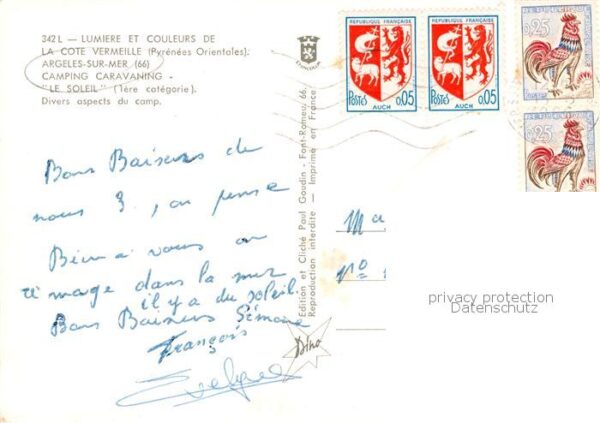 342 L - LUMIERE ET COULEURS DE
LA COTE VERMEILLE (Pyrénées Orientales).
ARGELES-SUR-MER (66)
CAMPING CARAVANING -
"LE SOLEIL" (1ère catégorie).
Divers aspects du camp.
Bons Baisers de
nous 3, on pense
Bien à vous on
nage dans la mer
il y a du soleil.
Bons Baisers Simone
François
Edition et Cliché Paul Goudin - Font-Romeu, 66.
Reproduction interdite - Imprimé en France
Dino
REPUBLIQUE FRANÇAISE
POSTES 0,05
AUCH
REPUBLIQUE FRANÇAISE
POSTES 0,05
AUCH
0,25
0,25
Ma
N°
privacy protection
Datenschutz